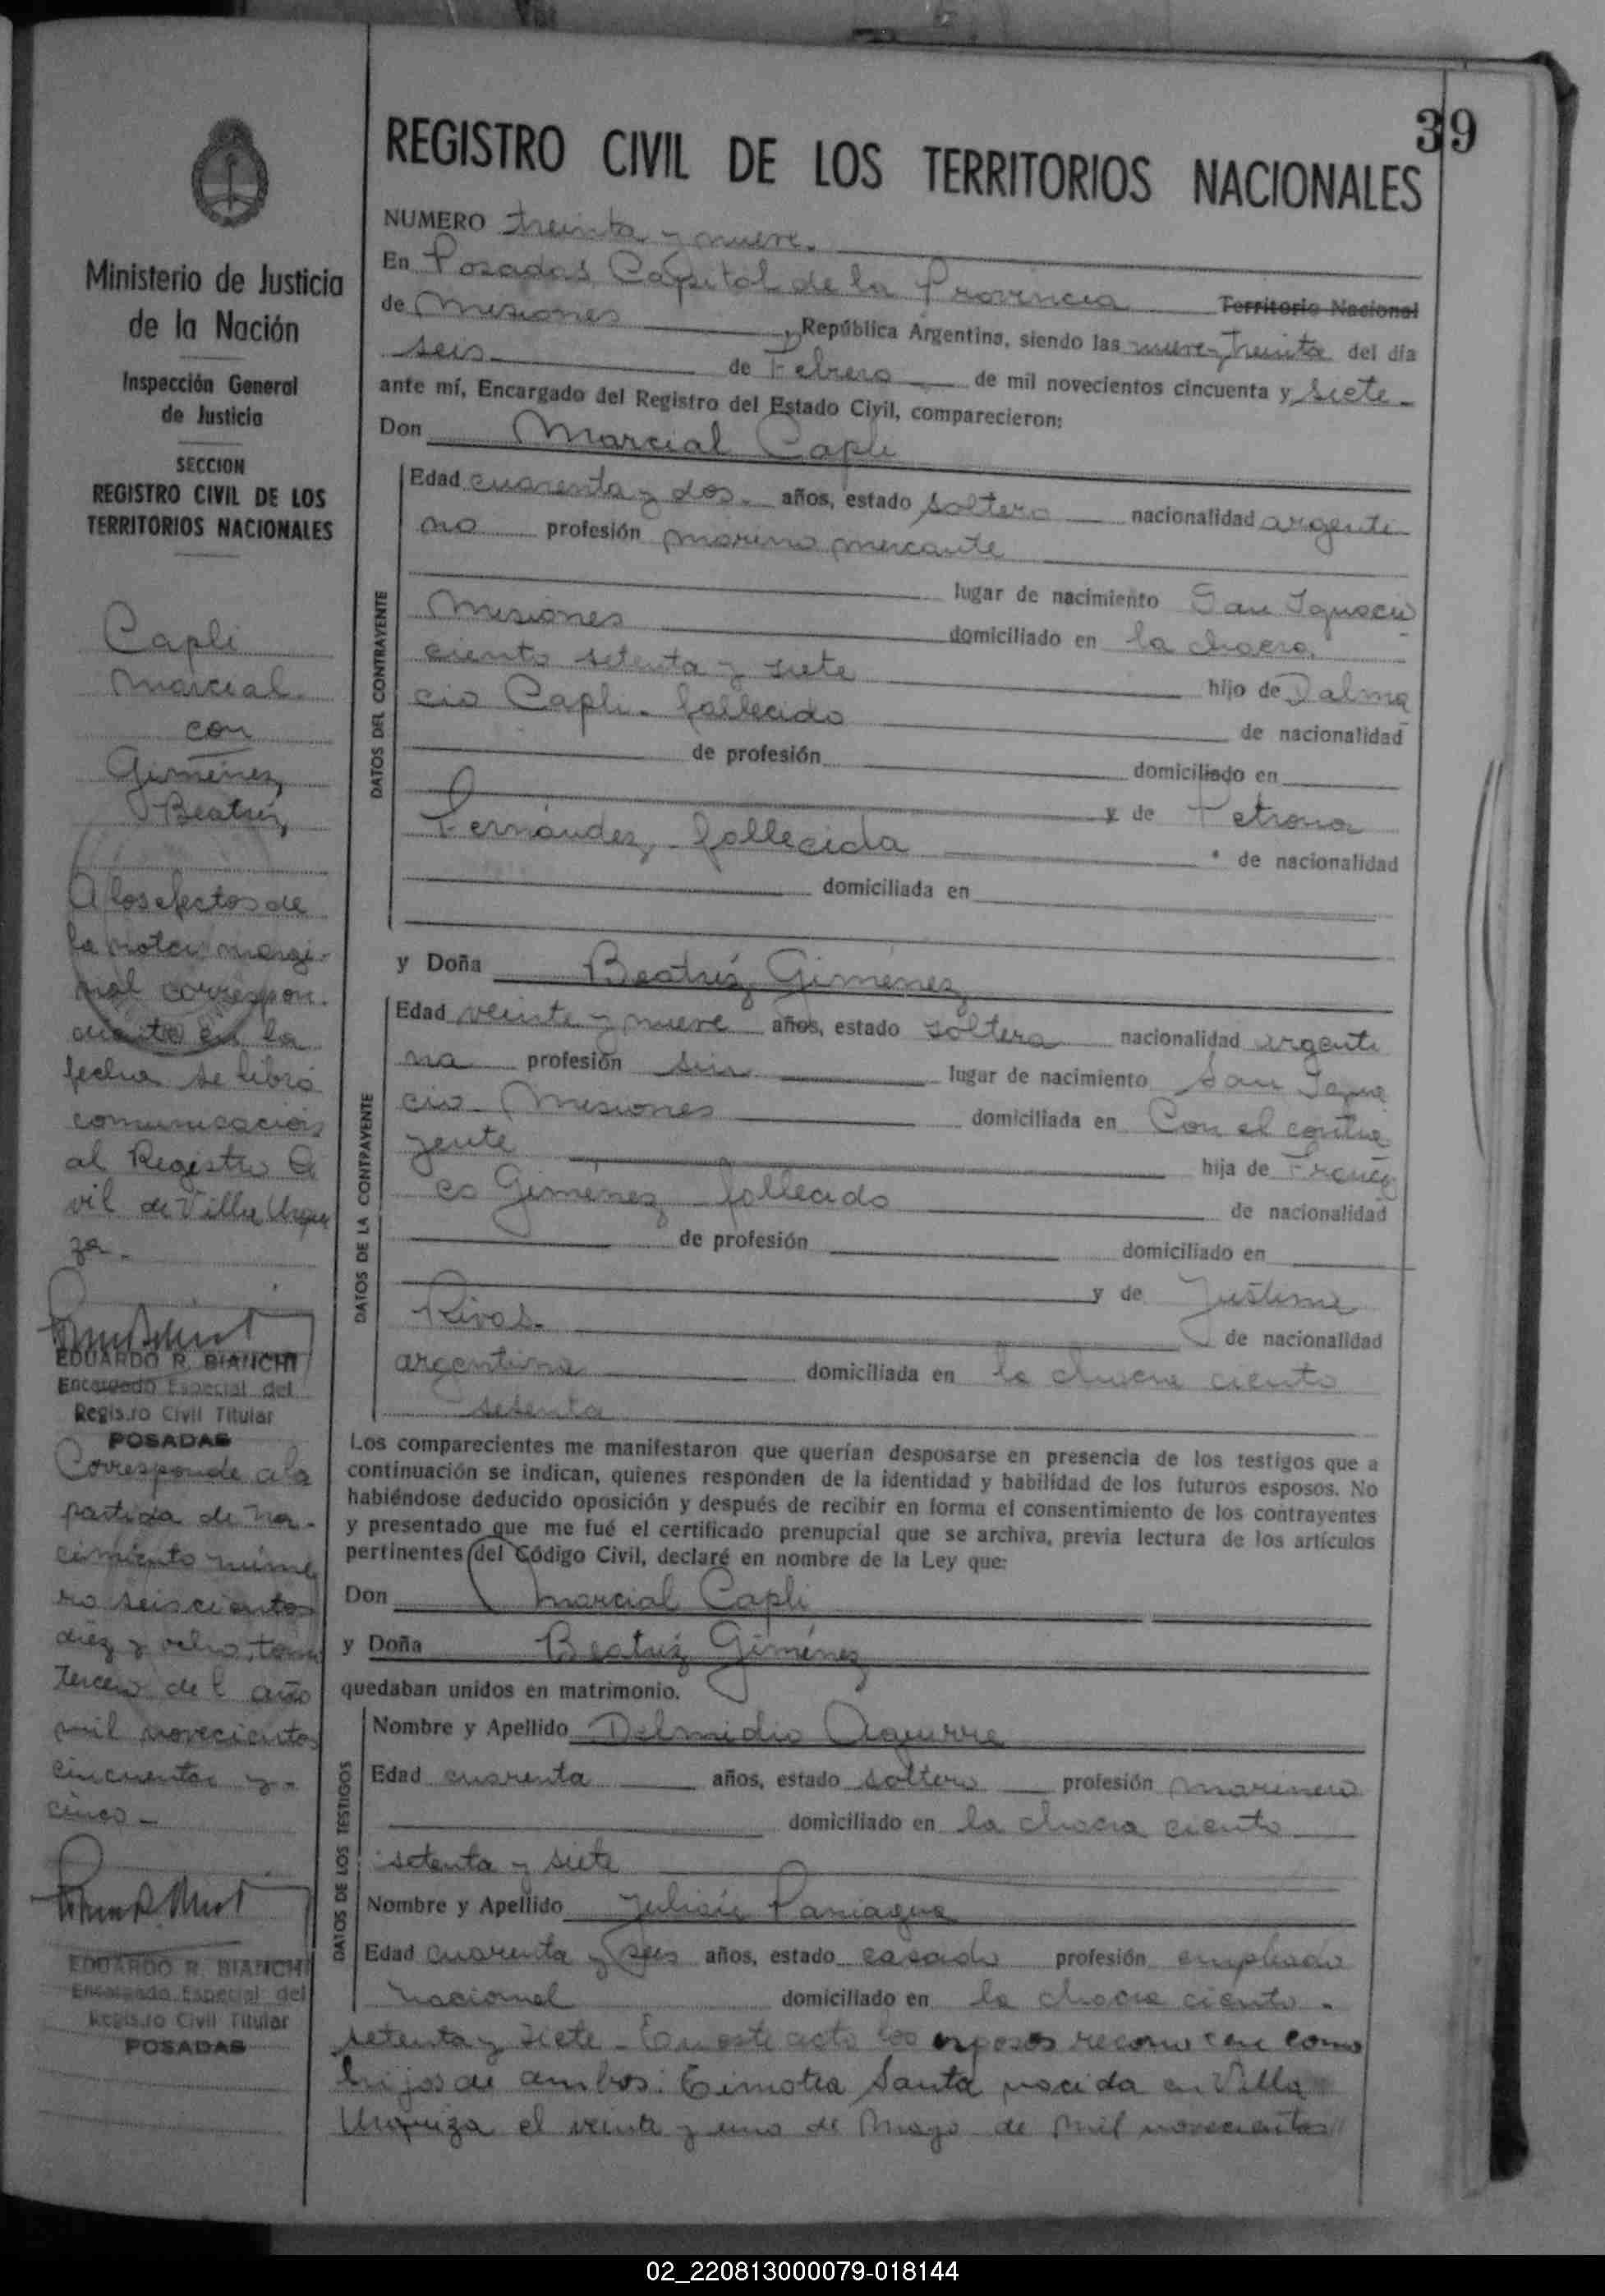 39
REGISTRO CIVIL DE LOS TERRITORIOS NACIONALES
NUMERO treinta y nueve.
En Posadas Capital de la Provincia Territorio Nacional
de Misiones, República Argentina, siendo las nueve y treinta del día
seis de Febrero de mil novecientos cincuenta y siete
ante mí, Encargado del Registro del Estado Civil, comparecieron:
Don Marcial Capli
DATOS DEL CONTRAYENTE
Edad cuarenta y dos. años, estado soltero nacionalidad argenti
no profesión marino mercante
lugar de nacimiento San Ignacio
Misiones domiciliado en la chacra
ciento setenta y siete hijo de Dalma
cio Capli. fallecido de nacionalidad
de profesión domiciliado en
y de Petrona
Fernández, fallecida de nacionalidad
domiciliada en
y Doña Beatríz Giménez
DATOS DE LA CONTRAYENTE
Edad veinte y nueve años, estado soltera nacionalidad argenti
na profesión sin lugar de nacimiento San Igna
cio. Misiones domiciliada en Con el contra
yente hija de Francis
co Giménez fallecido de nacionalidad
de profesión domiciliado en
y de Justina
Rivas. de nacionalidad
argentina domiciliada en la chacra ciento
setenta
Los comparecientes me manifestaron que querían desposarse en presencia de los testigos que a
continuación se indican, quienes responden de la identidad y habilidad de los futuros esposos. No
habiéndose deducido oposición y después de recibir en forma el consentimiento de los contrayentes
y presentado que me fué el certificado prenupcial que se archiva, previa lectura de los artículos
pertinentes del Código Civil, declaré en nombre de la Ley que:
Don Marcial Capli
y Doña Beatríz Giménez
quedaban unidos en matrimonio.
DATOS DE LOS TESTIGOS
Nombre y Apellido Delmidio Aguirre
Edad cuarenta años, estado soltero profesión marinero
domiciliado en la chacra ciento
setenta y siete
Nombre y Apellido Julián Paniagua
Edad cuarenta y seis años, estado casado profesión empleado
nacional domiciliado en la chacra ciento
setenta y siete - En este acto los esposos reconocen como
hijos de ambos: Timotea Santa nacida en Villa
Urquiza el veinte y uno de Mayo de mil novecientos
Ministerio de Justicia
de la Nación
Inspección General
de Justicia
SECCION
REGISTRO CIVIL DE LOS
TERRITORIOS NACIONALES
Capli
Marcial
con
Giménez
Beatríz
A los efectos de
la nota margi-
nal correspon-
diente en la
fecha se libró
comunicación
al Registro Ci
vil de Villa Urqui
za.
EDUARDO R. BIANCHI
Encargado Especial del
Registro Civil Titular
POSADAS
Corresponde a la
partida de na-
cimiento núme
ro seiscientos
diez y ocho, tomo
tercero del año
mil novecientos
cincuenta y
cinco
EDUARDO R. BIANCHI
Encargado Especial del
Registro Civil Titular
POSADAS
02_220813000079-018144